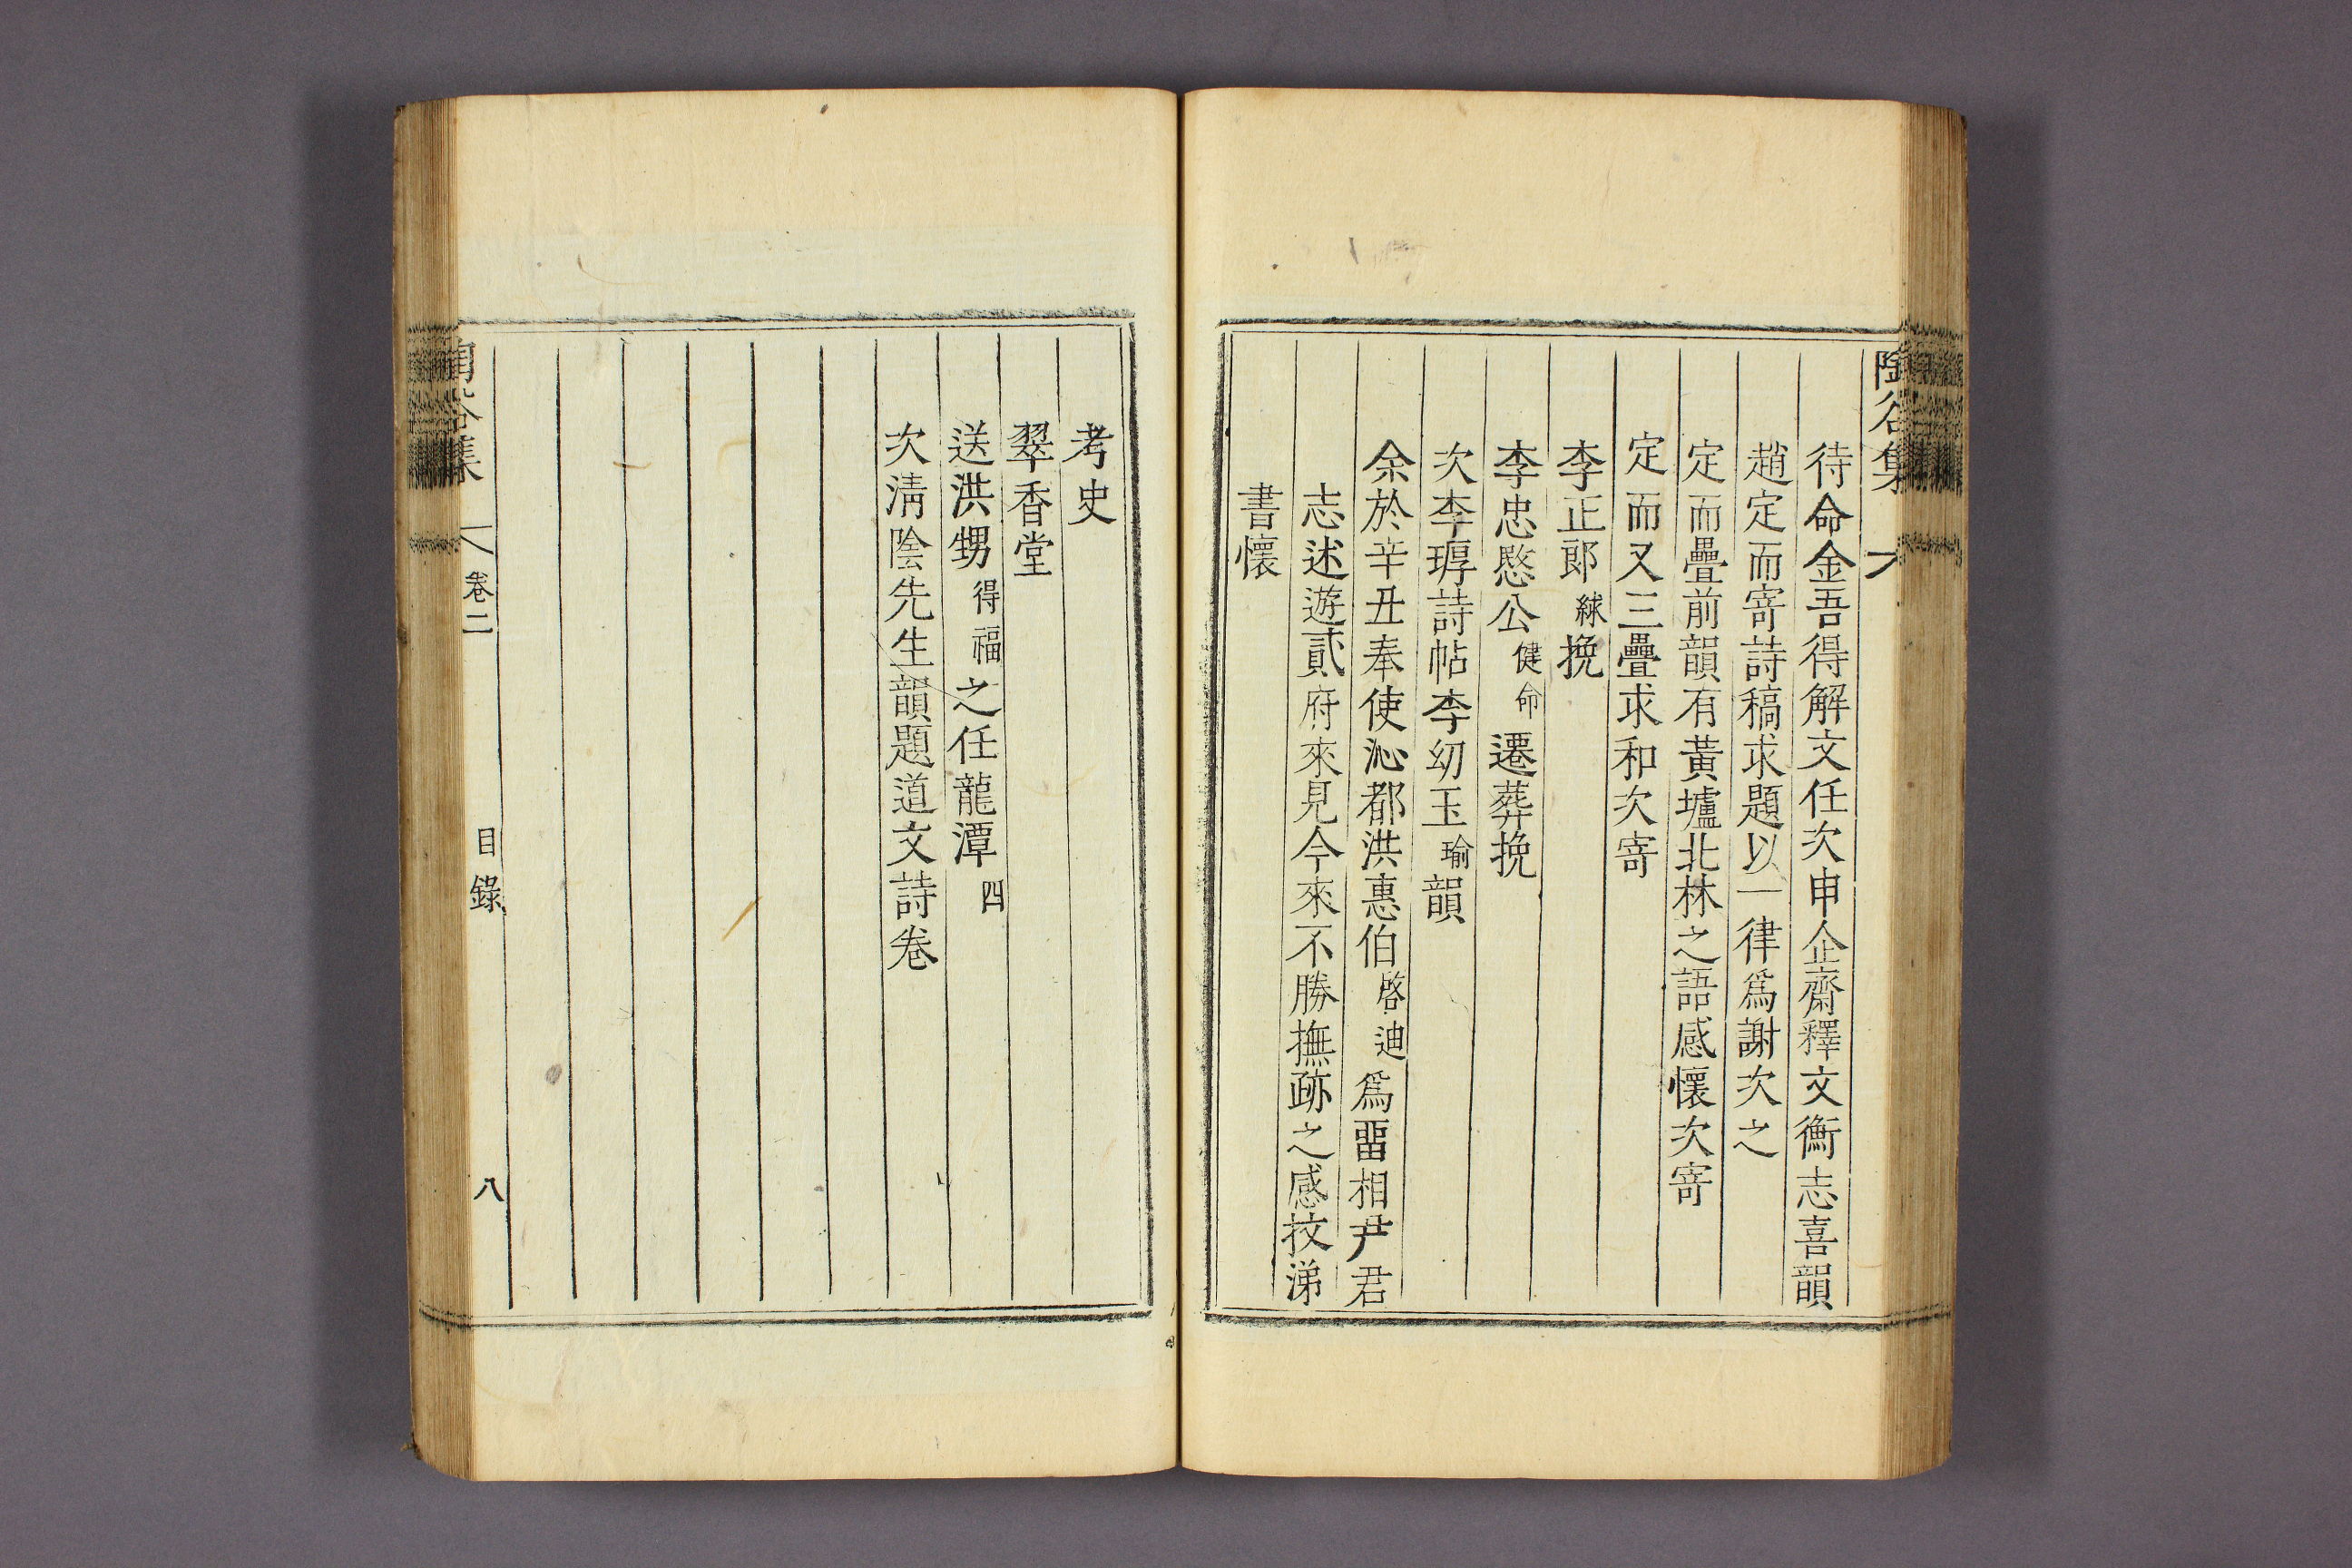 陶谷集
待命金吾得解文任次申企齋釋文衡志喜韻
趙定而寄詩稿求題以一律爲謝次之
定而疊前韻有黃壚北林之語感懷次寄
定而又三疊求和次寄
李正郞絿挽
李忠愍公健命遷葬挽
次李㙐詩帖李幼玉瑜韻
余於辛丑奉使沁都洪惠伯啓迪爲畱相尹君
志述遊貳府來見今來不勝撫跡之感抆涕
書懷
考史
翠香堂
送洪甥得福之任龍潭四
次淸陰先生韻題道文詩卷
陶谷集 卷二 目錄 八